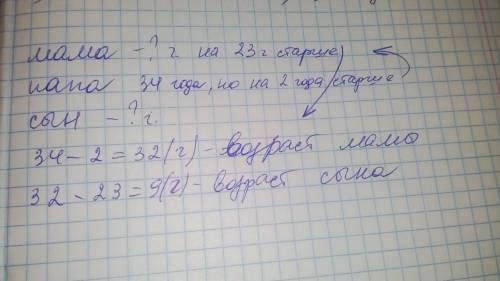 мама - ? г на 23 г старше
папа 34 года, но на 2 года старше
сын - ? г.
34 - 2 = 32 (г) - возраст мамы
32 - 23 = 9 (г) - возраст сына